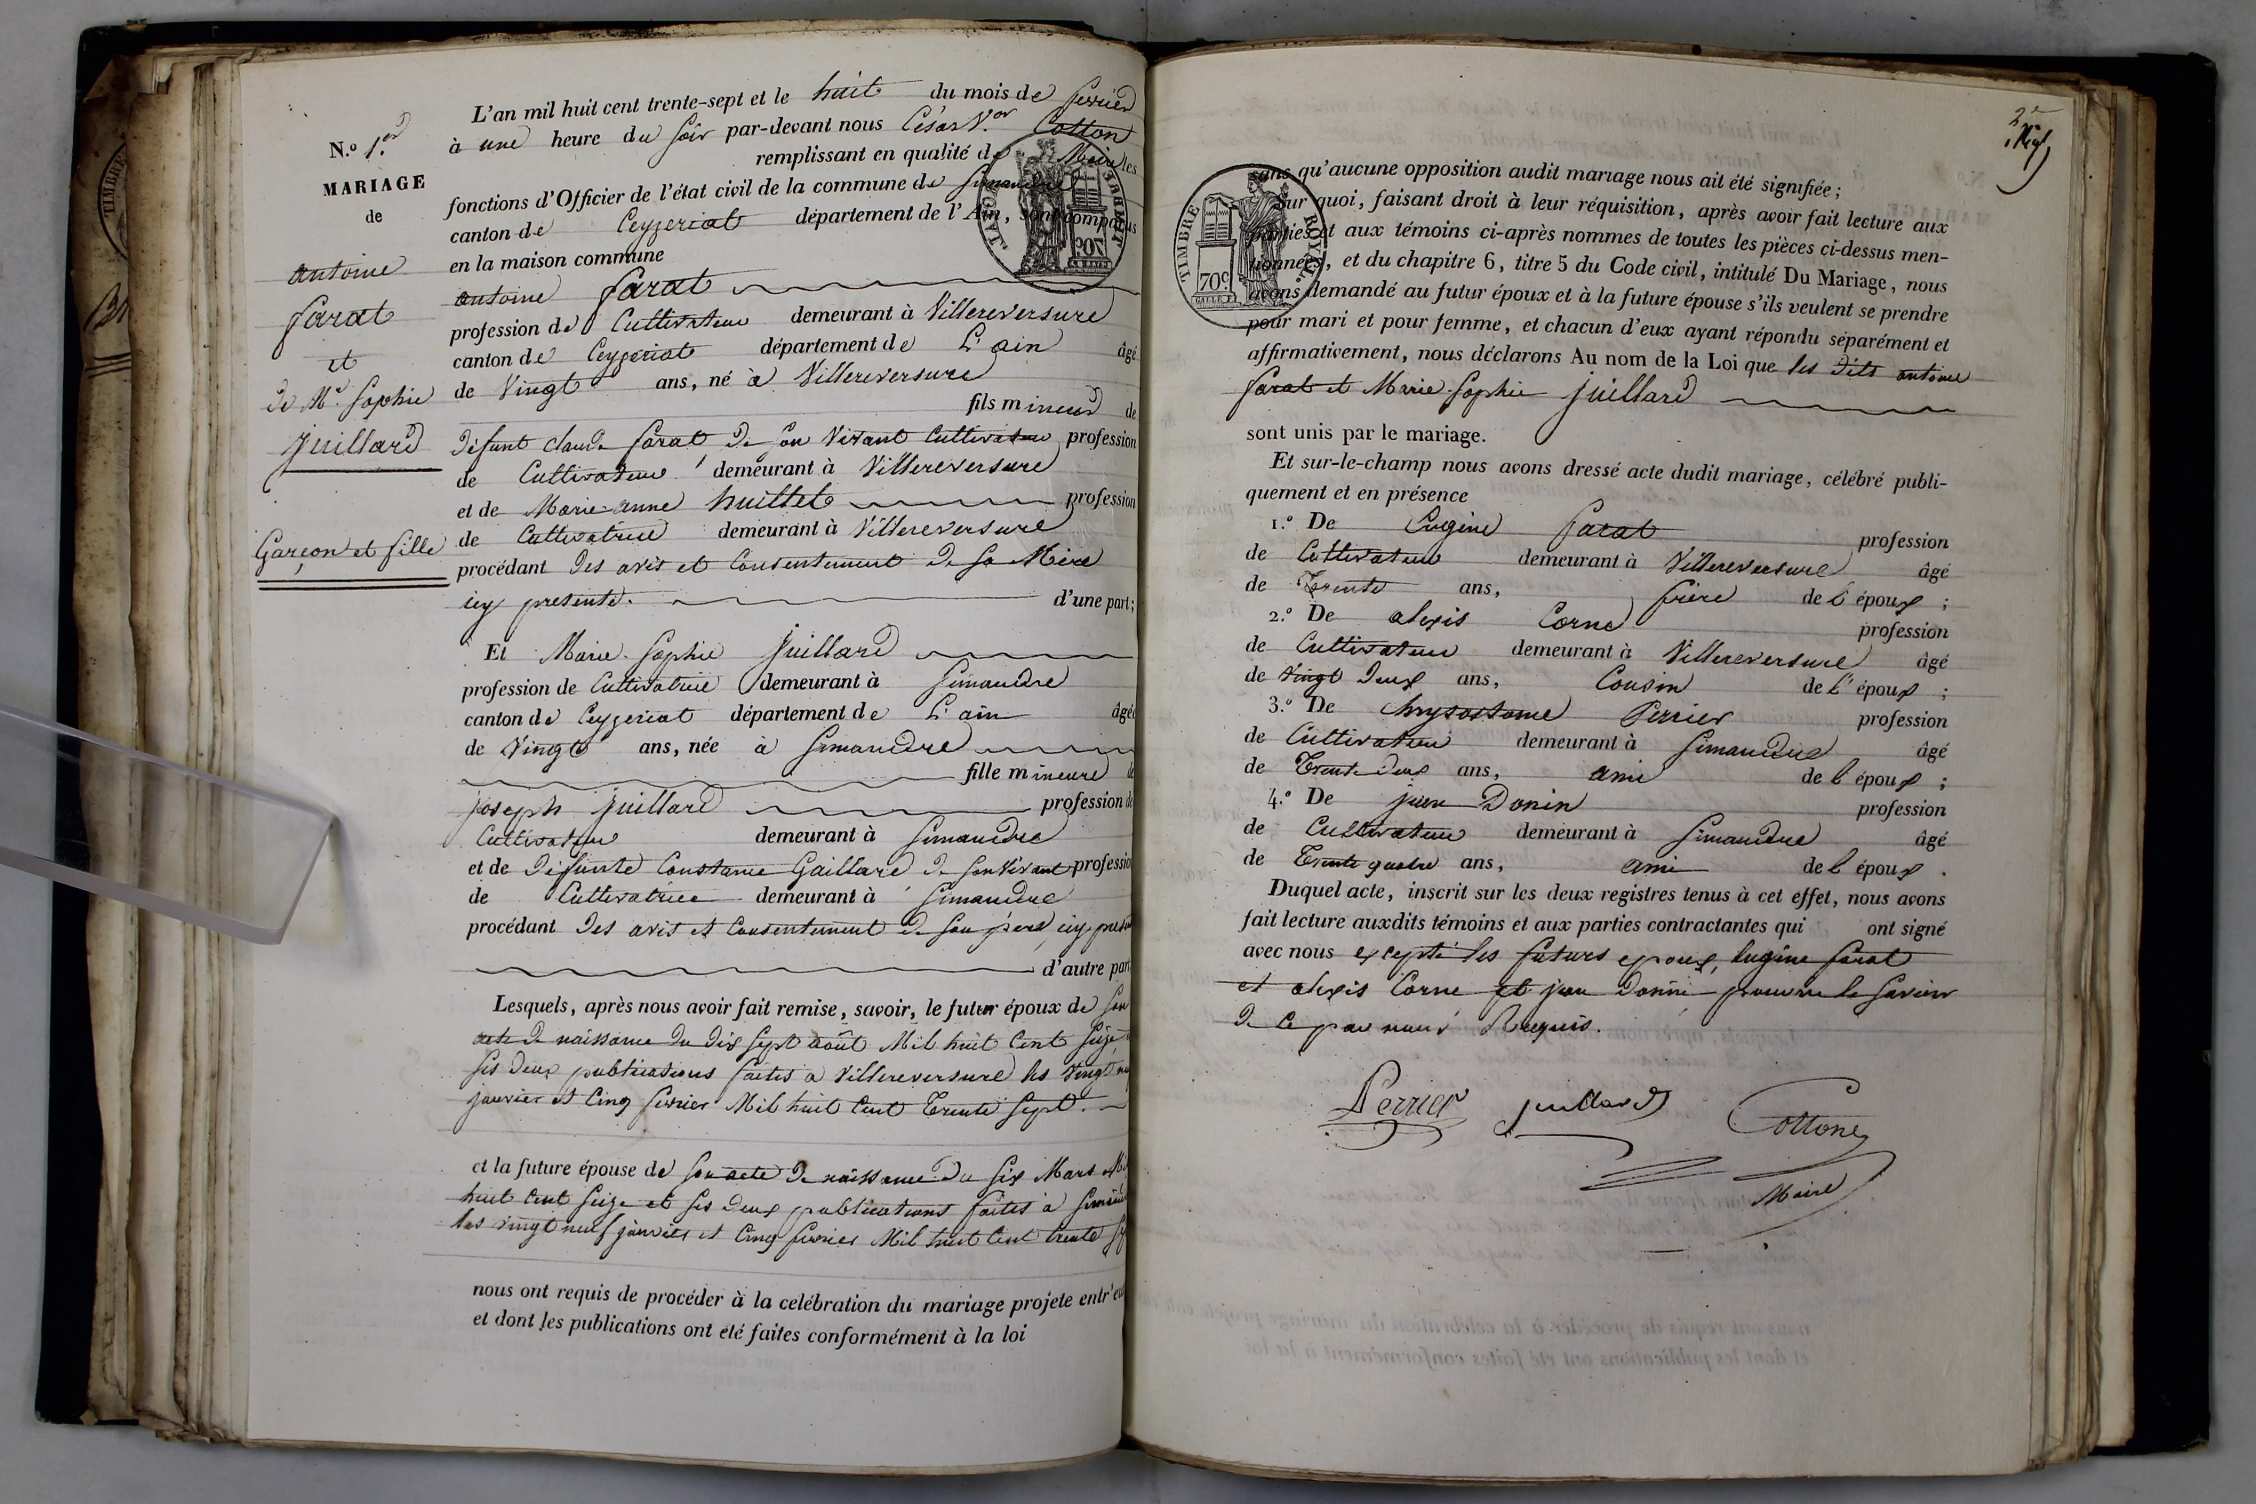 N.º 1.er
MARIAGE
de
antoine
farat
et
de Mie Sophie
juillard
Garçon et fille
L'an mil huit cent trente-sept et le huit du mois de fevrier
à une heure du soir par-devant nous César V.or Cotton
remplissant en qualité de Maire les
fonctions d'Officier de l'état civil de la commune de Simandre
canton de Ceyzeriat département de l'Ain, sont comparus
en la maison commune
antoine farat
profession de Cultivateur demeurant à Villereversure
canton de Ceyzeriat département de L'ain âgé
de Vingt ans, né à Villereversure
fils mineur de
défunt claude farat de son Vivant Cultivateur profession
de Cultivateur demeurant à Villereversure
et de Marie anne huillet profession
de Cultivatrice demeurant à Villereversure
procédant des avis et Consentement de sa Mère
icy presente. d'une part;
Et Marie Sophie juillard
profession de Cultivatrice demeurant à Simandre
canton de Ceyzeriat département de L'ain âgée
de Vingt ans, née à Simandre
fille mineure de
joseph juillard profession de
Cultivateur demeurant à Simandre
et de défunte Constance Gaillard de son Vivant profession
de Cultivatrice demeurant à Simandre
procédant des avis et Consentement de son père, icy present
d'autre part
Lesquels, après nous avoir fait remise, savoir, le futur époux de son
acte de naissance du dix sept août Mil huit Cent seize
ses deux publications faites a Villereversure les Vingt neuf
janvier et Cinq fevrier Mil huit Cent Trente sept.
et la future épouse de son acte de naissance du six Mars Mil
huit Cent seize et ses deux publications faites à Simandre
les vingt neuf janvier et Cinq fevrier Mil huit Cent trente sept
nous ont requis de procéder à la celébration du mariage projete entr'eux
et dont les publications ont été faites conformément à la loi
TIMBRE ROYAL.
70c
2e
sans qu'aucune opposition audit mariage nous ait été signifiée;
Sur quoi, faisant droit à leur réquisition, après avoir fait lecture aux
parties et aux témoins ci-après nommes de toutes les pièces ci-dessus men-
tionnées, et du chapitre 6, titre 5 du Code civil, intitulé Du Mariage, nous
avons demandé au futur époux et à la future épouse s'ils veulent se prendre
pour mari et pour femme, et chacun d'eux ayant répondu séparément et
affirmativement, nous déclarons Au nom de la Loi que les dits antoine
farat et Marie-Sophie juillard
sont unis par le mariage.
Et sur-le-champ nous avons dressé acte dudit mariage, célébré publi-
quement et en présence
1.º De Eugène farat profession
de Cultivateur demeurant à Villereversure âgé
de Trente ans, frère de l'époux;
2.º De alexis Corne profession
de Cultivateur demeurant à Villereversure âgé
de vingt Deux ans, Cousin de l'époux;
3.º De Chrysostome Perrier profession
de Cultivateur demeurant à Simandre âgé
de Trente Deux ans, ami de l'époux;
4.º De jean Donin profession
de Cultivateur demeurant à Simandre âgé
de Trente quatre ans, ami de l'époux.
Duquel acte, inscrit sur les deux registres tenus à cet effet, nous avons
fait lecture auxdits témoins et aux parties contractantes qui ont signé
avec nous excepté les futurs epoux, Eugène farat
et alexis Corne et jean Donin pour ne le savoir
de ce par nous Requis.
Perrier juillard Cotton
Maire